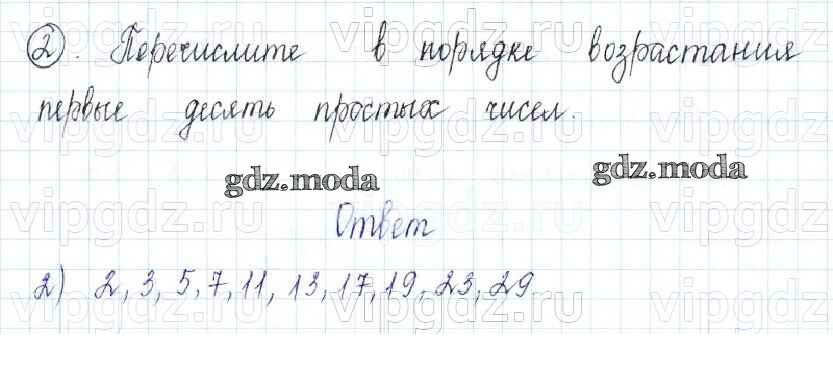 vipgdz.ru vipgdz.ru vipgdz.ru
② . Перечислите в порядке возрастания
первые десять простых чисел.
vipgdz.ru vipgdz.ru vipgdz.ru
gdz.moda gdz.moda
vipgdz.ru vipgdz.ru vipgdz.ru
Ответ
2) 2, 3, 5, 7, 11, 13, 17, 19, 23, 29.
vipgdz.ru vipgdz.ru vipgdz.ru